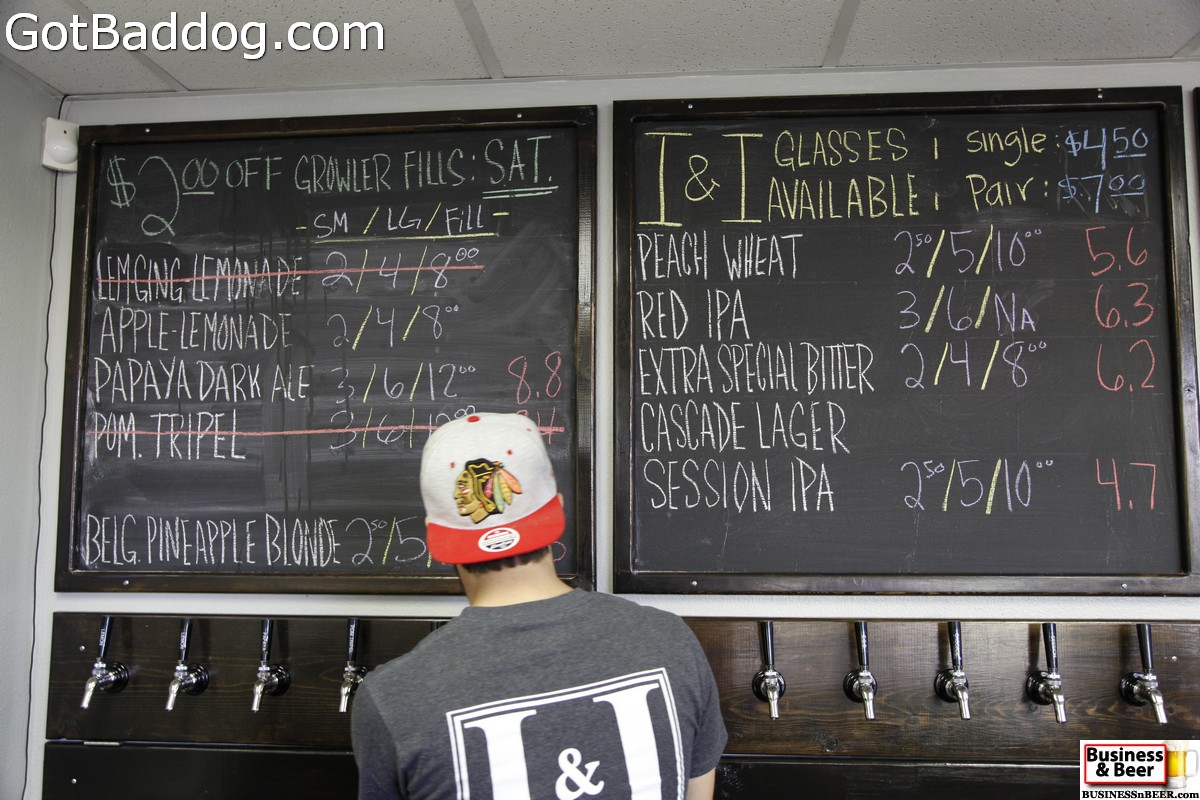 GotBaddog.com
$2.00 OFF GROWLER FILLS: SAT.
- SM / LG / Fill -
LEM-GING LEMONADE 2/4/8.00
APPLE-LEMONADE 2/4/8.00
PAPAYA DARK ALE 3/6/12.00 8.8
POM. TRIPEL 3/6/12.00
BELG. PINEAPPLE BLONDE 2.50/5/
I & I GLASSES ; single: $4.50
AVAILABLE ; Pair: $7.00
PEACH WHEAT 2.50/5/10.00 5.6
RED IPA 3/6/NA 6.3
EXTRA SPECIAL BITTER 2/4/8.00 6.2
CASCADE LAGER
SESSION IPA 2.50/5/10.00 4.7
I & I
Business
& Beer
BUSINESSnBEER.com